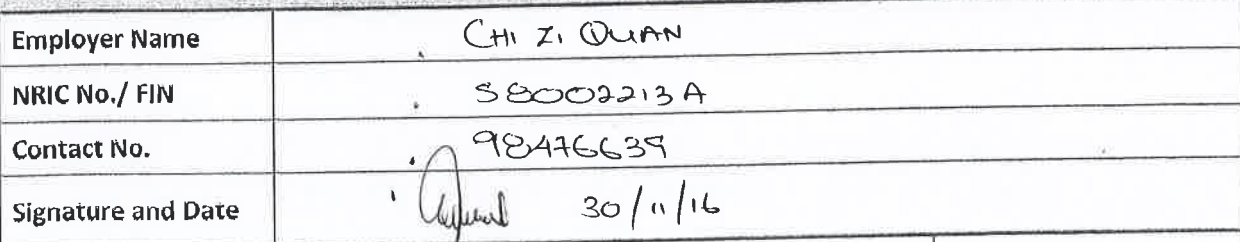 Employer Name CHI ZI QUAN
NRIC No./ FIN S8002213A
Contact No. 98476639
Signature and Date 30/11/16